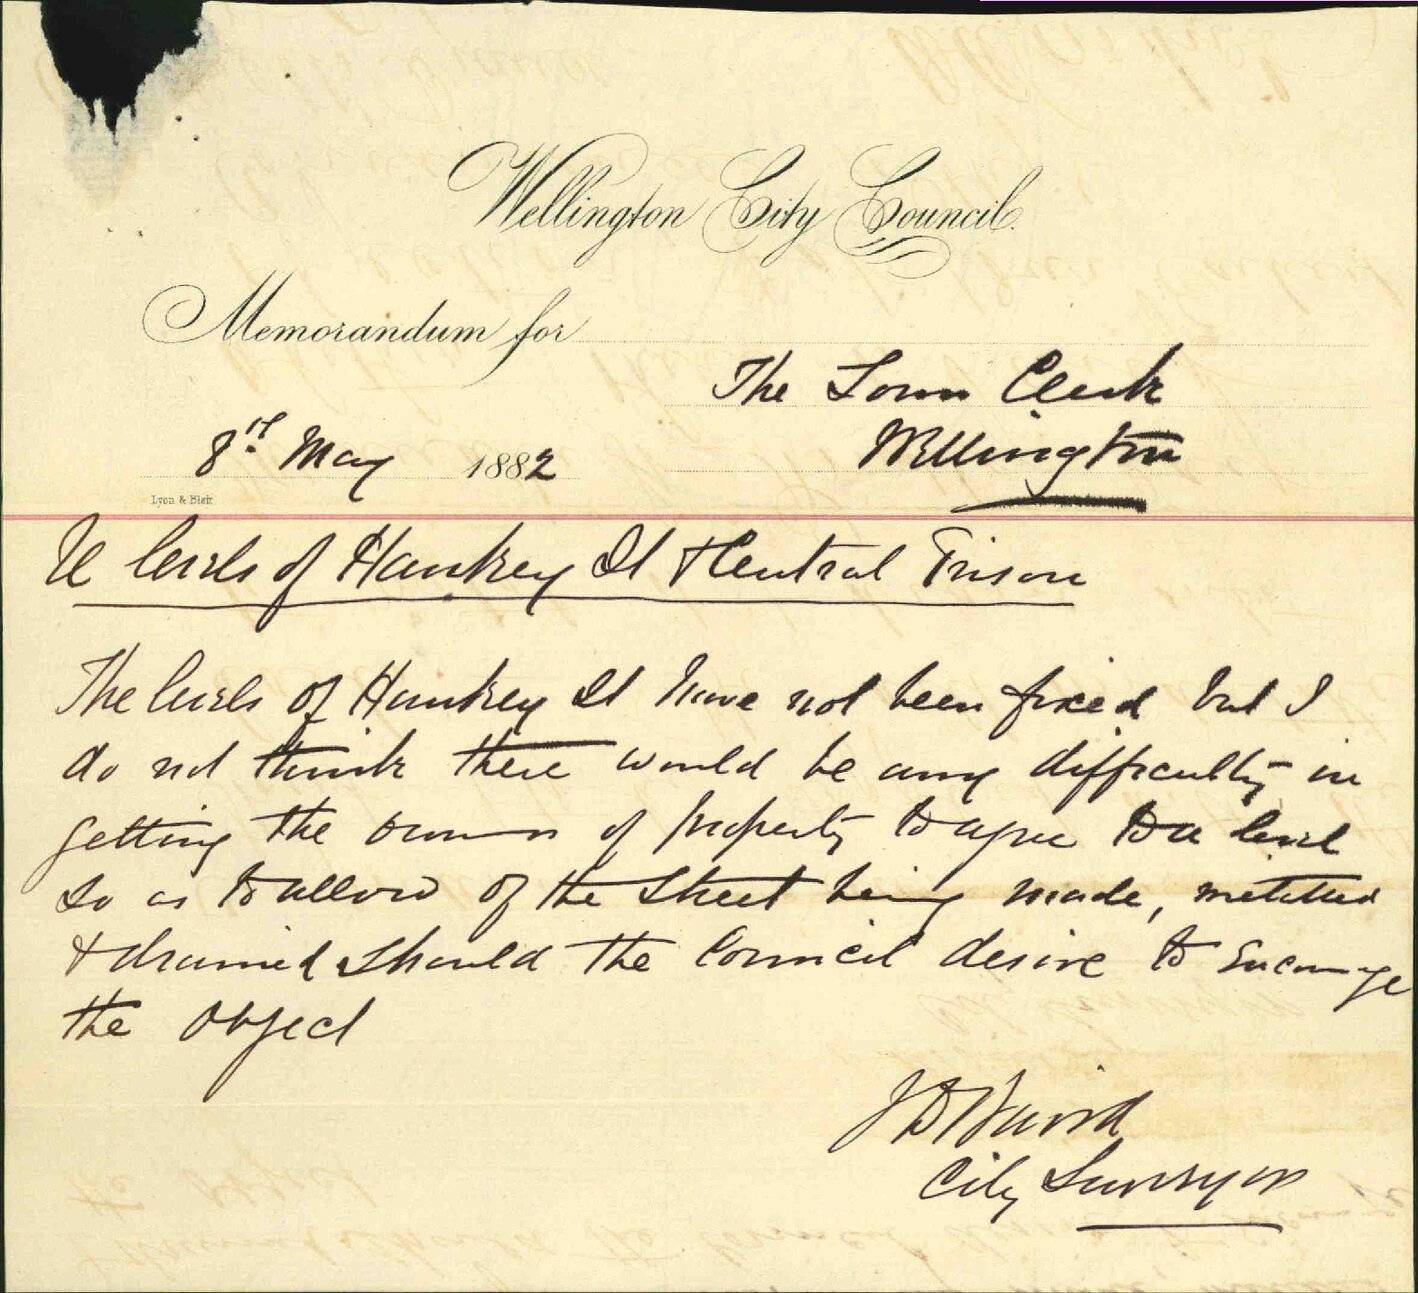 Wellington City Council.
Memorandum for
The Town Clerk
Wellington
8th May 1882
Lyon & Blair
Re levels of Hankey St & Central Prison
The levels of Hankey St have not been fixed but I
do not think there would be any difficulty in
getting the owners of property to agree to a level
so as to allow of the street being made, metalled
& drained should the Council desire to encourage
the object
J D Baird
City Surveyor